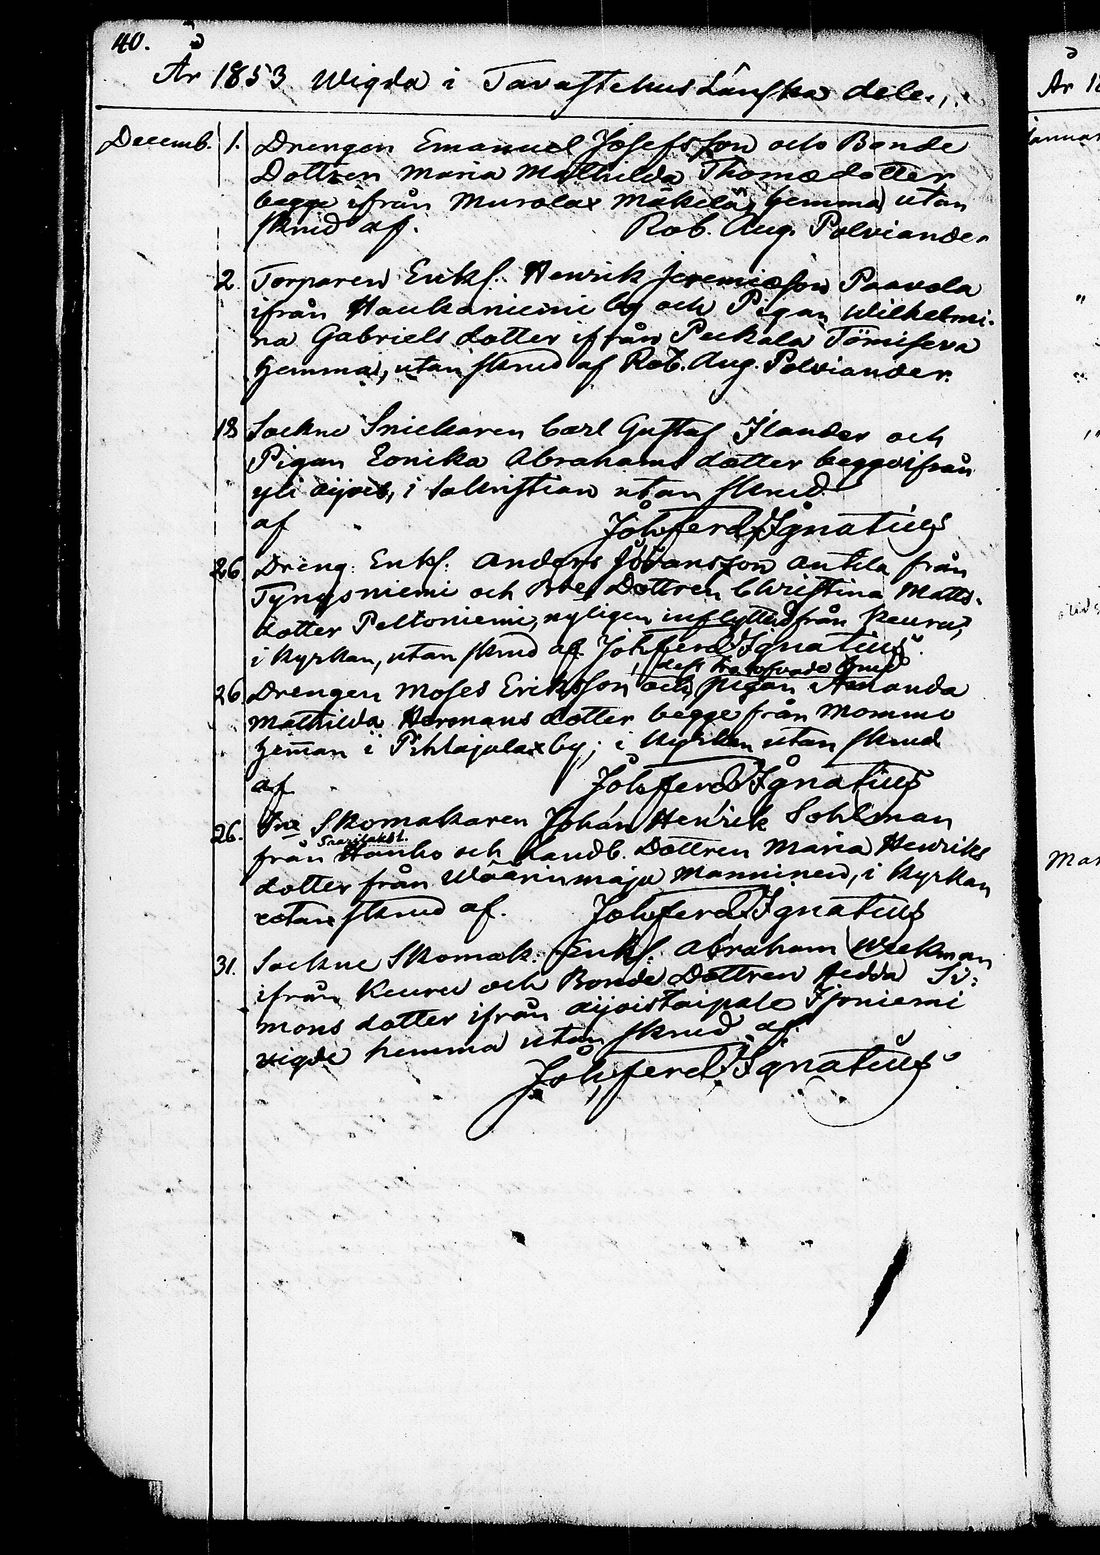 40.
År 1853 Wigda i Tavastehus Länska dele.,
Decemb. 1. Drengen Emanuel Josefsson och Bonde
Dottren Maria Mathilda Thomædotter
begge ifrån Murolax Mäkelä, hemma utan
skrud af. Rob. Aug. Polviander
2. Torparen Enkf. Henrik Jeremiæson Paavola
ifrån Haukaniemi by och Pigan Wilhelmi-
na Gabriels dotter ifrån Pekkala
hemma, utan skrud af Rob. Aug. Polviander.
18 Sockne Snickaren Carl Gustaf Ilander och
Pigan Eonika Abrahams dotter begge ifrån
yli i Sakristian utan skrud
af Joh ferd Ignatius
26. Dreng. Enkf. Anders Johansson Antila från
Tyngsniemi och Dottren Christina Matts-
dotter Peltoniemi, nyligen inflyttad från Keuru,
i Kyrkan, utan skrud af Joh ferd Ignatius.
26 Drengen Moses Eriksson och Pigan Amanda
Mathilda Hermans dotter begge från Mommo
heman i Pihlajalax by; i Kyrkan utan skrud
af Joh ferd Ignatius
26. Skomakaren Johan Henrik Sohlman
från och Landb. Dottren Maria Henriks
dotter från Wäärinmaja Manninen, i Kyrkan
utan skrud af. Joh ferd Ignatius
31. Sockne Skomak. Enkf. Abraham Wekman
ifrån Keuru och Bonde Dottren Hedda Si-
mons dotter ifrån
vigde hemma utan skrud af
Joh ferd Ignatius
År 18
Januar
Mar